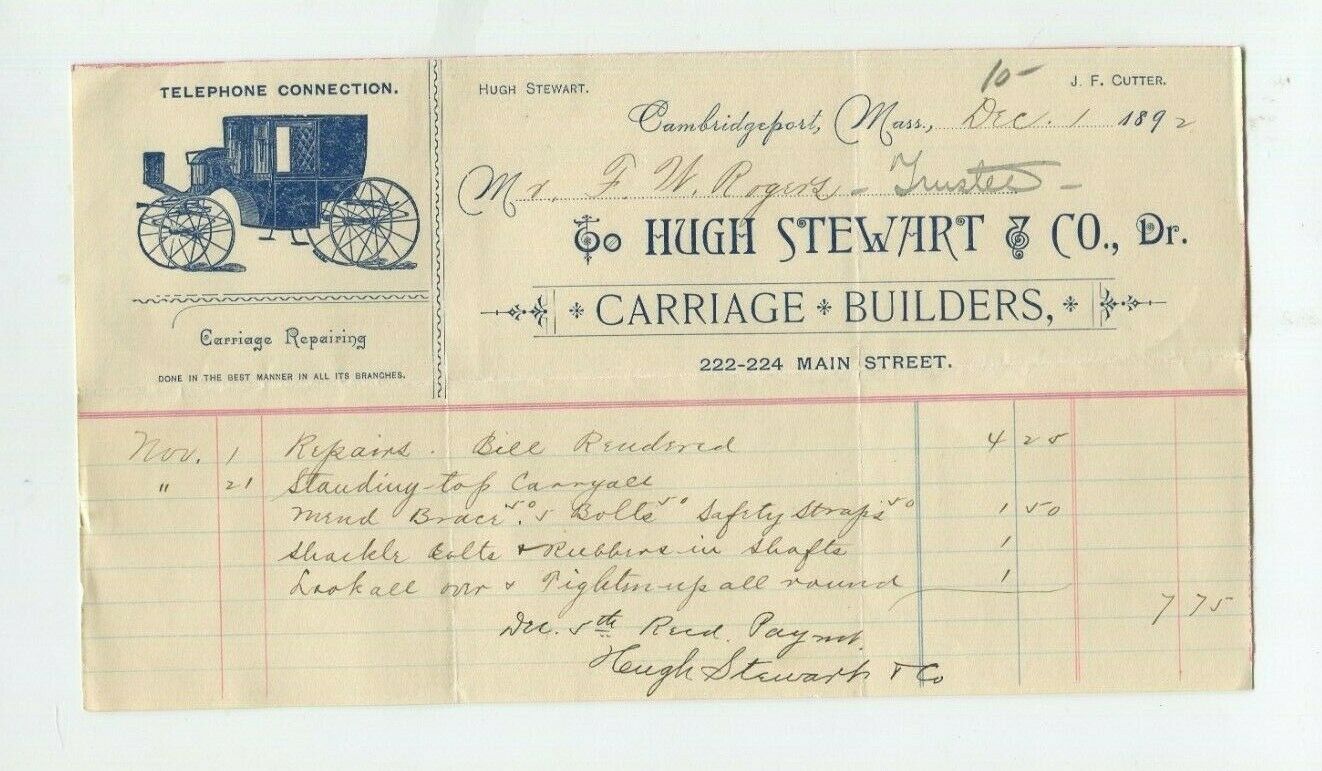 TELEPHONE CONNECTION.
Carriage Repairing
DONE IN THE BEST MANNER IN ALL ITS BRANCHES.
HUGH STEWART.
J. F. CUTTER.
10
Cambridgeport, Mass., Dec. 1 1892
Mr. F. W. Rogers - Trustee -
To HUGH STEWART & CO., Dr.
CARRIAGE * BUILDERS,
222-224 MAIN STREET.
Nov. 1 Repairs. Bill Rendered 4 25
" 21 Standing-top Carryall
Mend Brace 50. 5 Bolts 50 Safety Straps 50 1 50
Shackle bolts & Rubbers in Shafts 1
Look all over & Tighten up all round 1
7 75
Dec. 5th Recd. Paymt.
Hugh Stewart & Co